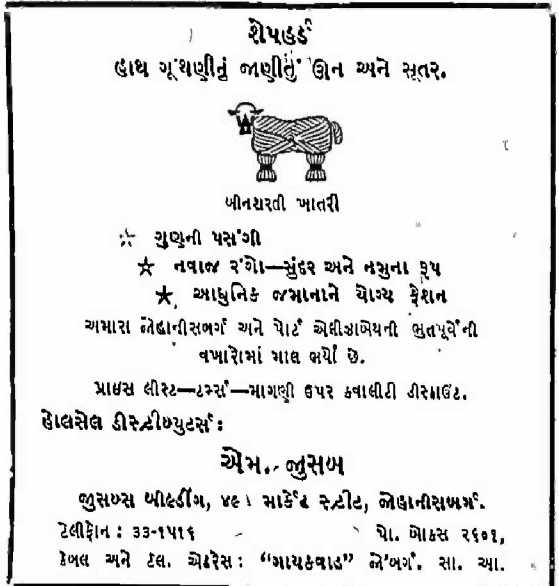 શેપહર્ડ
હાથ ગૂંથણીનું જાણીતું ઊન અને સૂતર.
બીનશરતી ખાતરી
☆ ગુણની પસંગી
☆ નવાજ રંગો—સુંદર અને નમુના રૂપ
★ આધુનિક જમાનાને યોગ્ય ફેશન
અમારા જોહાનીસબર્ગ અને પોર્ટ એલીઝાબેથની ભુતપૂર્વની
વખારોમાં માલ ભર્યો છે.
પ્રાઇસ લીસ્ટ—ટર્મ્સ—માગણી ઉપર કવાલીટી ડીસ્કાઉંટ.
હોલસેલ ડીસ્ટ્રીબ્યુટર્સ:
એમ. જુસબ
જુસબ્સ બીલ્ડીંગ, ૪૯ માર્કેટ સ્ટ્રીટ, જોહાનીસબર્ગ.
ટેલીફોન : ૩૩-૧૫૧૬ પો. બોકસ ૨૬૦૧,
કેબલ અને ટેલ. એડ્રેસ: "ગાયકવાડ" જો'બર્ગ. સા. આ.